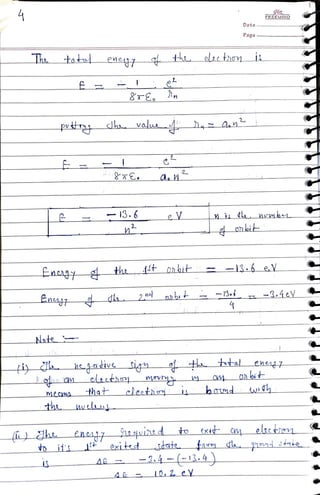 4
Date
Page
The total energy of the electron is
E = - 1/8πε₀ e²/rn
putting the value of rn = a₀n²
E = - 1/8πε₀ e²/a₀n²
E = -13.6/n² eV n is the number of orbit
Energy of the 1st orbit = -13.6 eV
Energy of the 2nd orbit = -13.6/4 = -3.4eV
Note :-
(i) The negative sign of the total energy
of an electron moving in an orbit
means that electron is bound with
the nucleus
(ii) The energy required to exit an electron
to it's 1st exited state form the ground state
is ΔE = -3.4-(-13.4)
ΔE = 10.2 eV